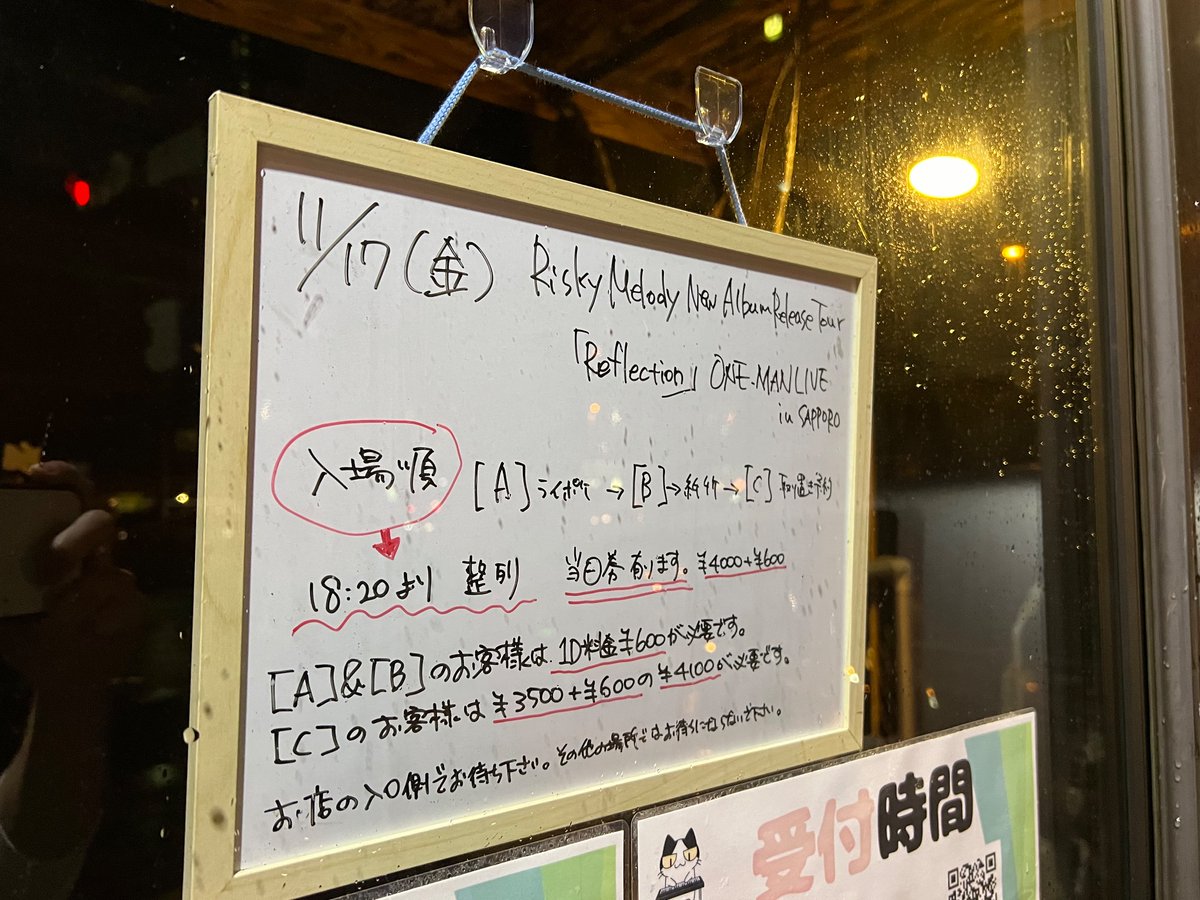 11/17(金) Risky Melody New Album Release Tour
「Reflection」 ONE-MAN LIVE
in SAPPORO
入場順 [A] ライポケ → [B] → 紙チケ → [C] 取り置き予約
18:20より 整列 当日券有ります。¥4000+¥600
[A]&[B]のお客様は、1D料金¥600が必要です。
[C]のお客様は¥3500+¥600の¥4100が必要です。
お店の入口側でお待ち下さい。その他の場所ではお待ちにならないで下さい。
受付時間